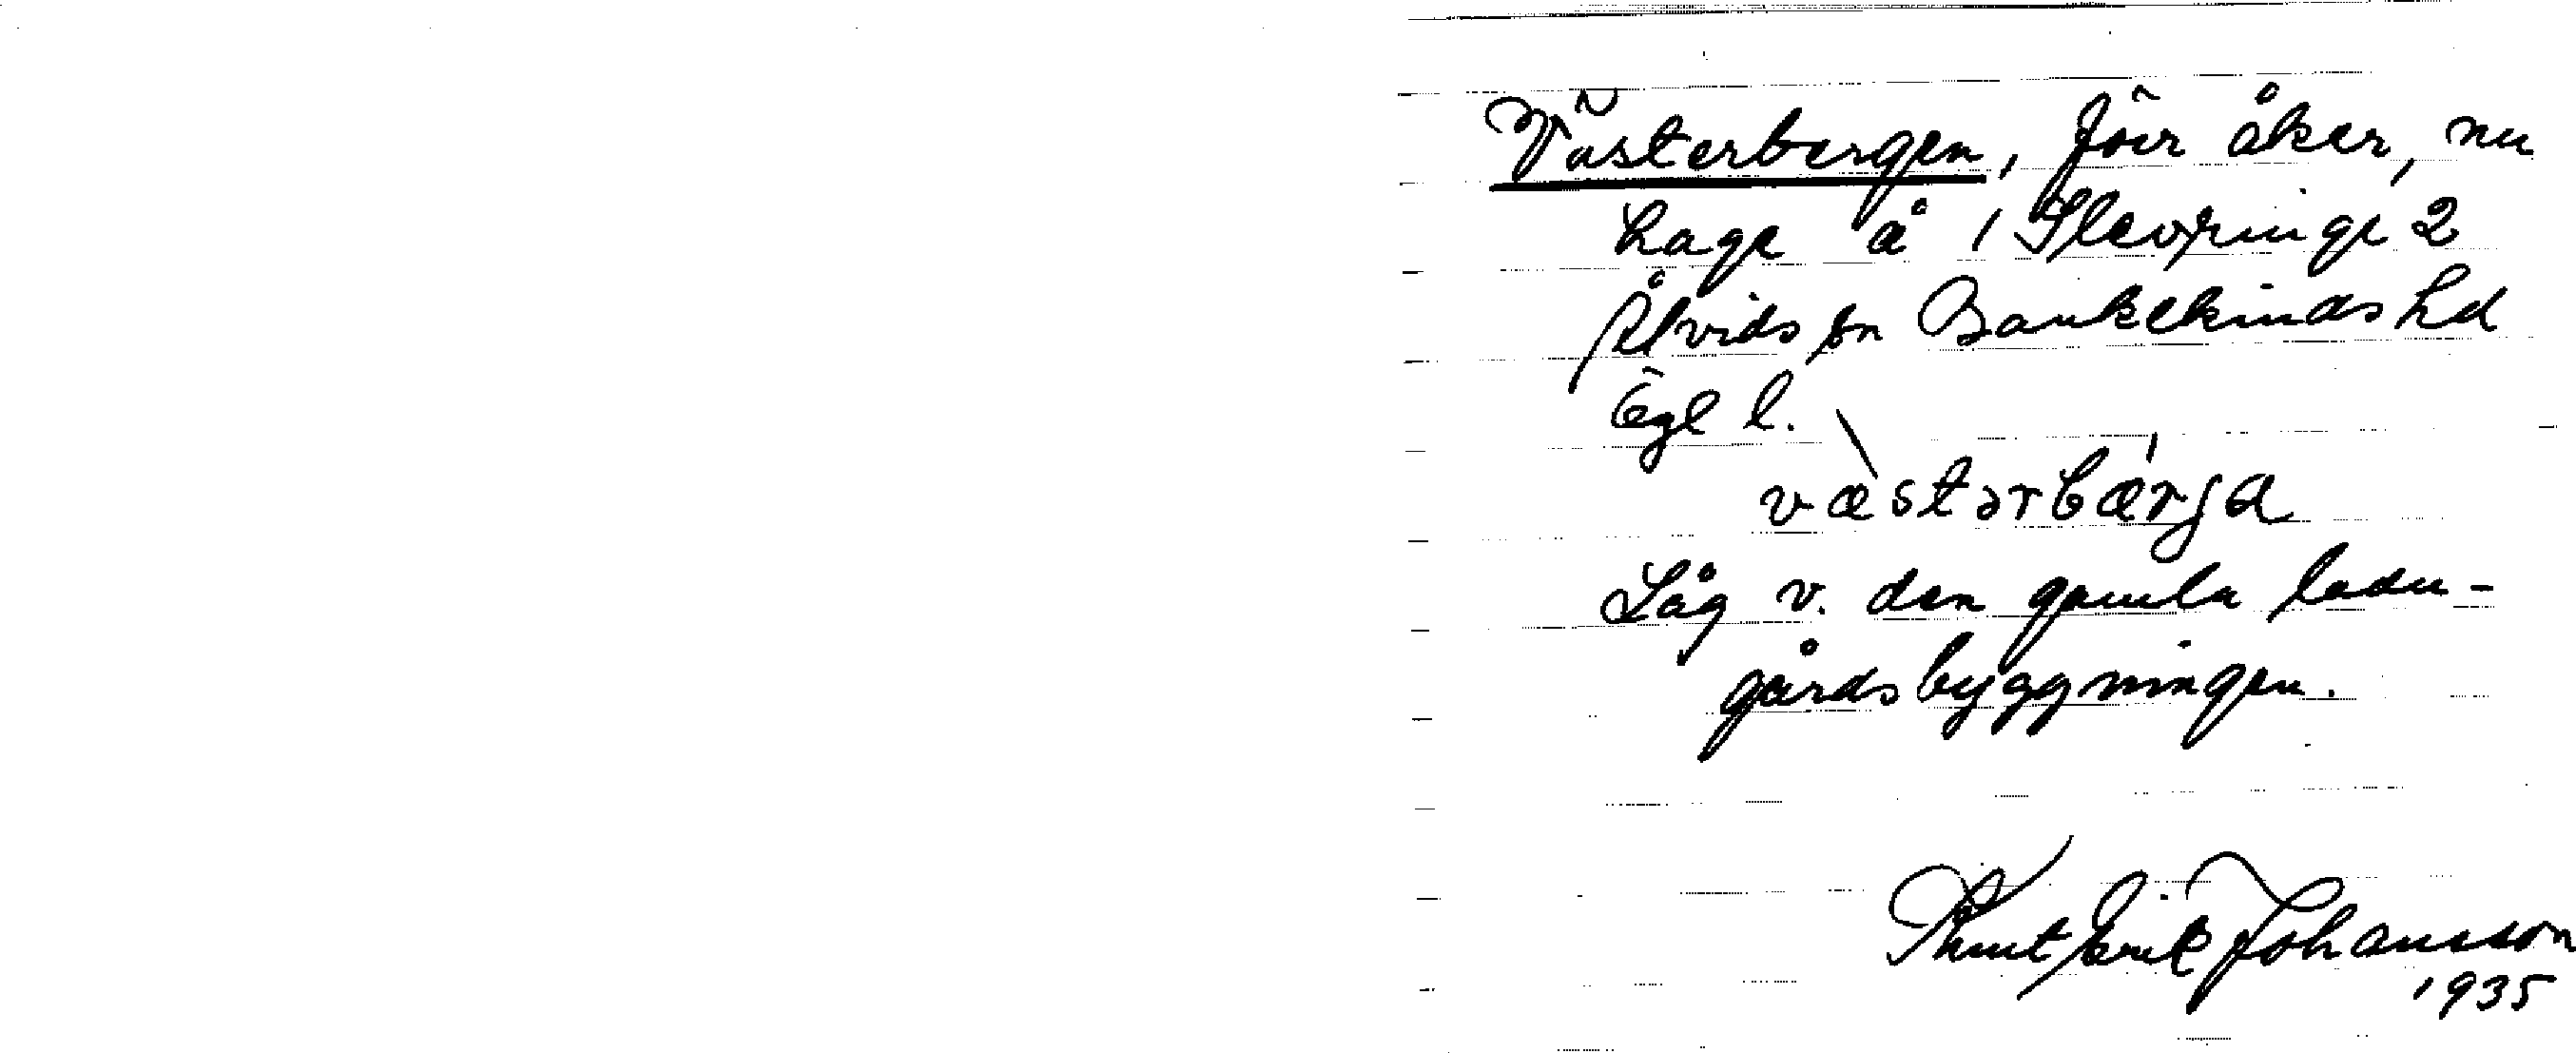 Västerbergen, förr åker, nu
hage å 1 Slevringe 2
Ålvids sn Bankekinds hd
Ögl l.
`væstərbær´ja
Låg v. den gamla ladu-
gårdsbyggningen.
Knut Erik Johansson
1935